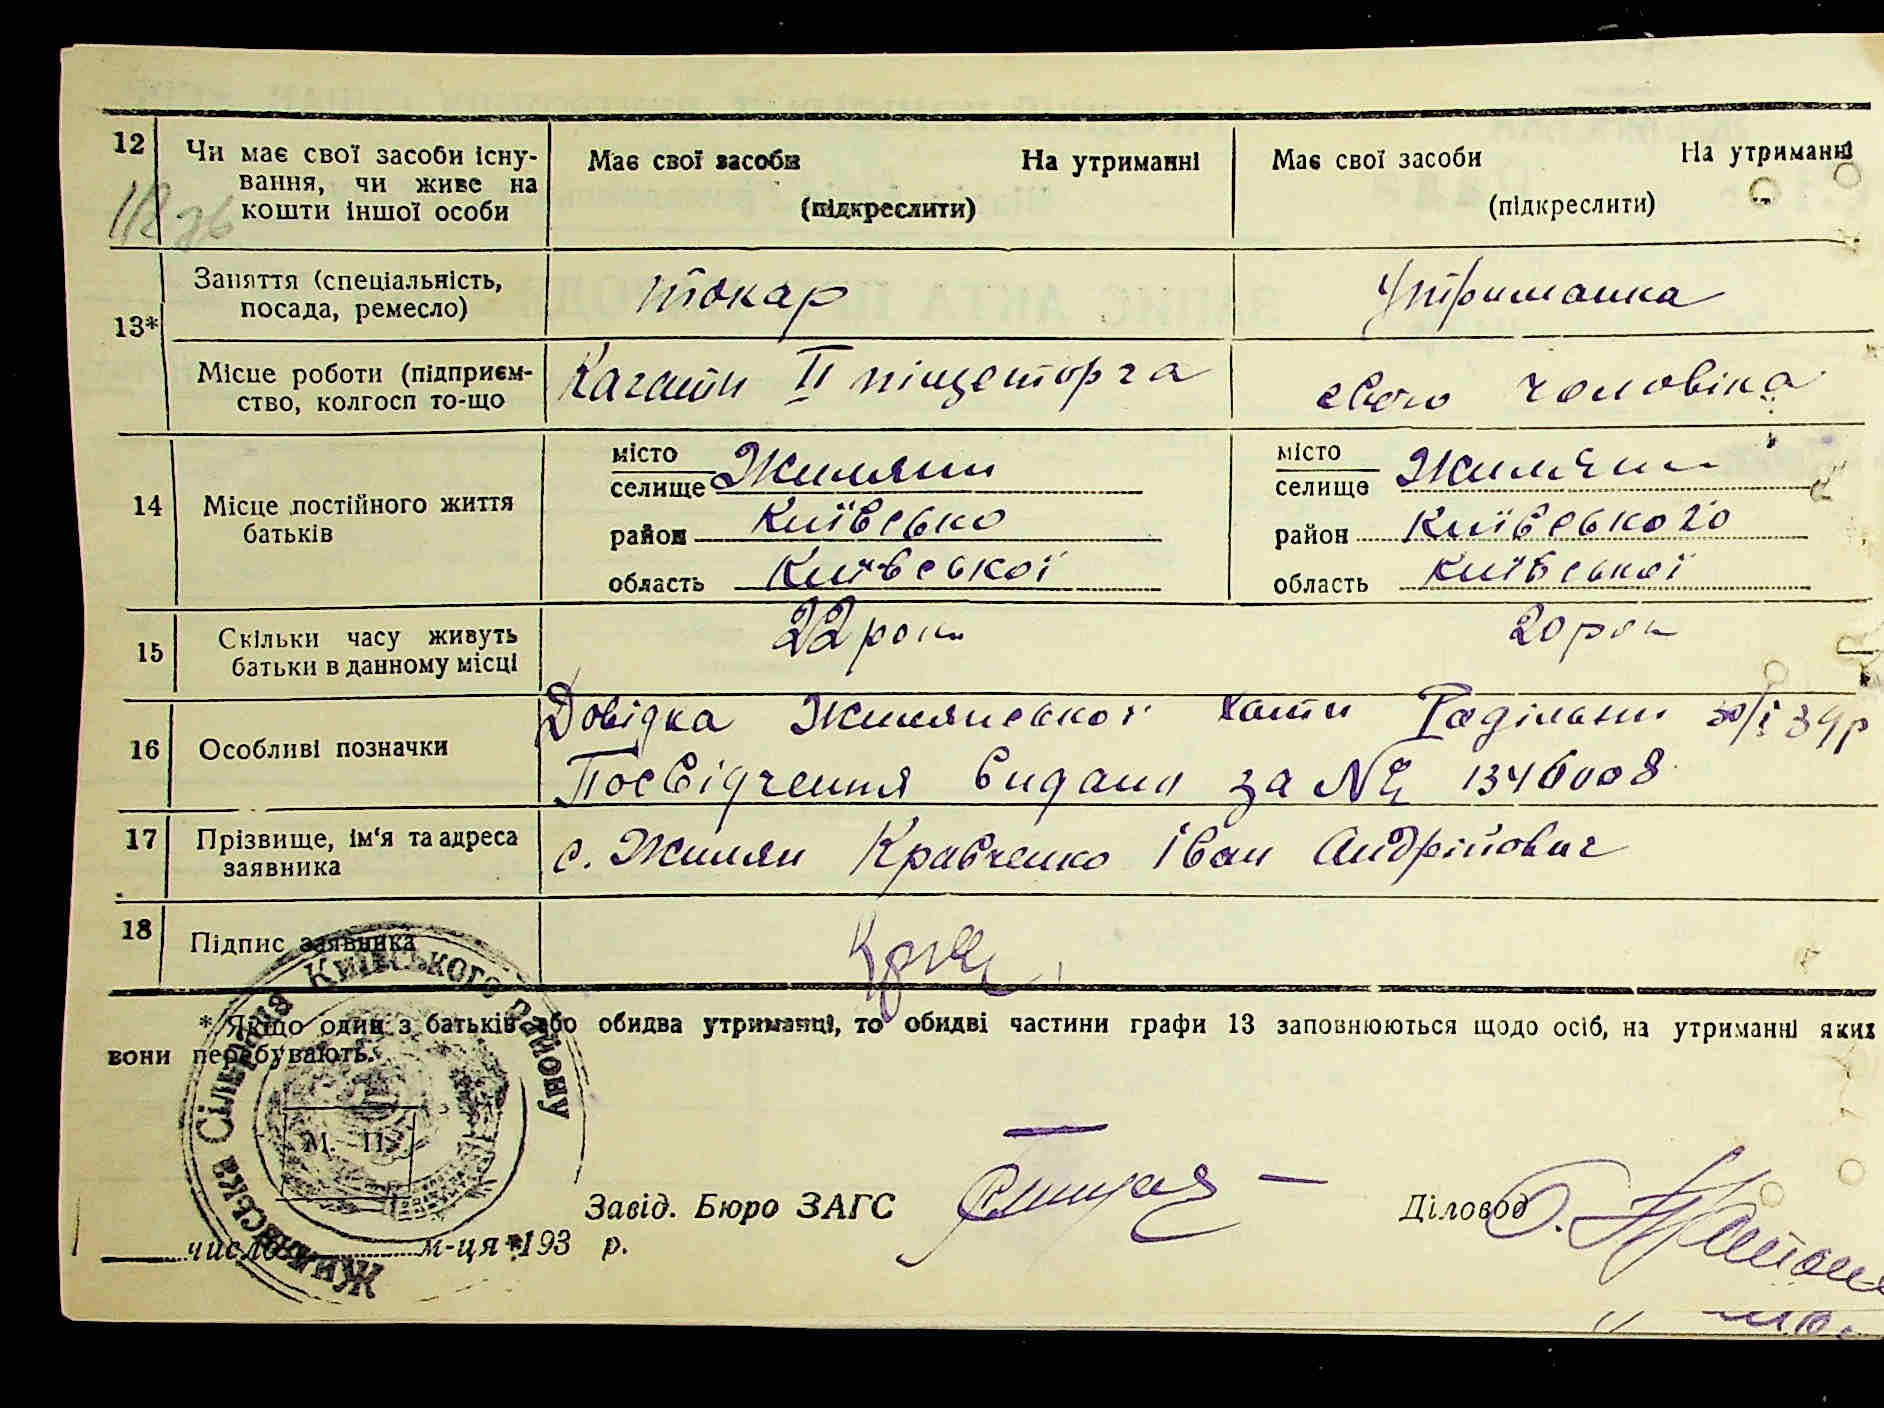 12 Чи має свої засоби існу-
вання, чи живе на
кошти іншої особи
Має свої засоби На утриманні
(підкреслити)
Має свої засоби На утриманні
(підкреслити)
13*
Заняття (спеціальність,
посада, ремесло)
токар
Утриманка
Місце роботи (підприєм-
ство, колгосп то-що
Кагати ІІ піщеторга
свого чоловіка
14 Місце постійного життя
батьків
місто
селище Жиляни
район Київсько
область Київської
місто
селище Жиляни
район Київського
область Київської
15 Скільки часу живуть
батьки в данному місці
22 роки
20 рок
16 Особливі позначки
Довідка Жилянської хати Радільни 30/І 39р
Посвідчення видано за № 1346008
17 Прізвище, ім'я та адреса
заявника
с. Жиляни Кравченко Іван Андрійович
18 Підпис заявника
* Якщо один з батьків або обидва утриманці, то обидві частини графи 13 заповнюються щодо осіб, на утриманні яких
вони перебувають.
Жилянська Сільрада Київського району
М. П.
Завід. Бюро ЗАГС
Діловод
число м-ця 193 р.